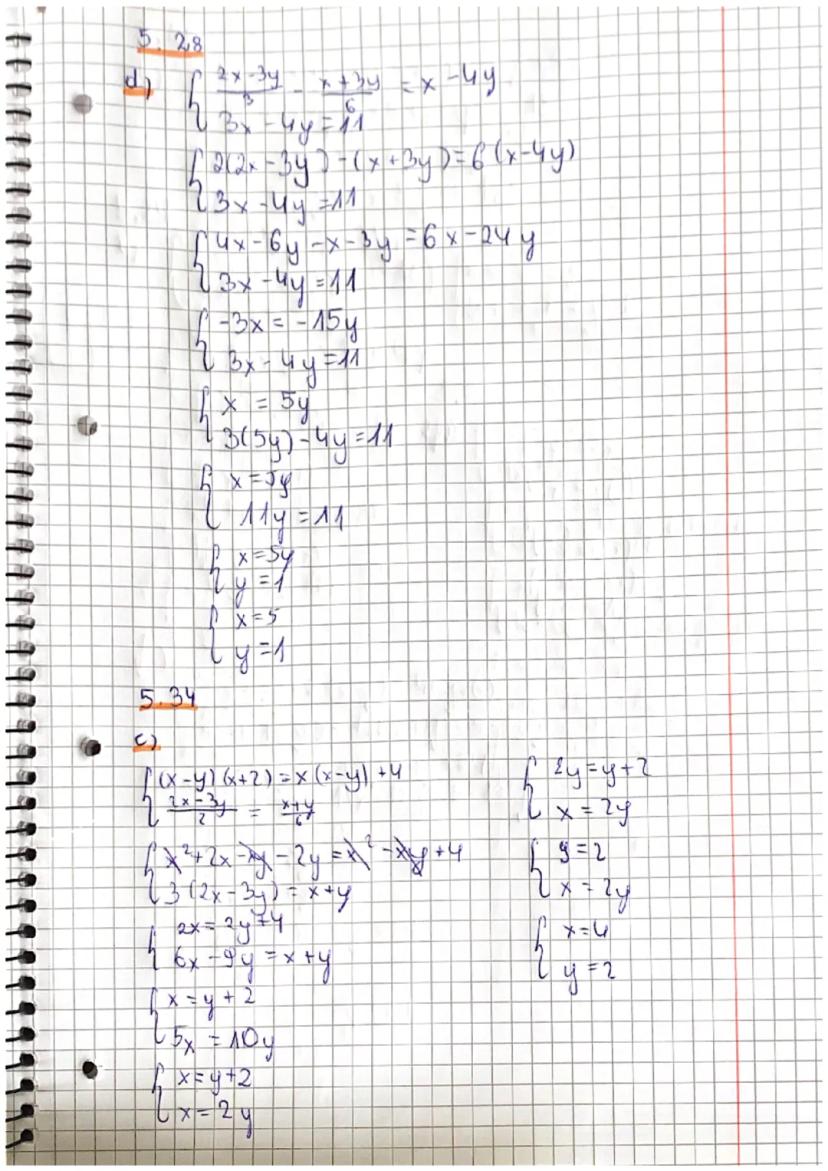 5.28
d) { (2x-3y)/3 - (x+3y)/6 = x-4y
3x-4y=11
{ 2(2x-3y)-(x+3y)=6(x-4y)
3x-4y=11
{ 4x-6y-x-3y=6x-24y
3x-4y=11
{ -3x=-15y
3x-4y=11
{ x = 5y
3(5y)-4y=11
{ x=5y
11y=11
{ x=5y
y=1
{ x=5
y=1
5.34
c)
{ (x-y)(x+2)=x(x-y)+4
(2x-3y)/2 = (x+y)/6
{ x²+2x-xy-2y=x²-xy+4
3(2x-3y)=x+y
{ 2x=2y+4
6x-9y=x+y
{ x=y+2
5x=10y
{ x=y+2
x=2y
{ 2y=y+2
x=2y
{ y=2
x=2y
{ x=4
y=2